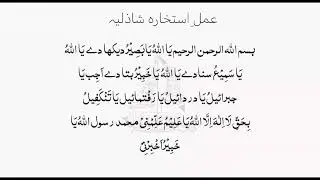 عمل استخارہ شاذلیہ
بسم اللہ الرحمن الرحیم یَا اَللہُ یَا بَصِیْرُ دیکھا دے یَا اَللہُ
یَا سَمِیْعُ سنا دے یَا اَللہُ یَا خَبِیْرُ بتا دے اَجِب یَا
جبرائیلُ یَا دردائیلُ یَا رَفتمائیل یَا تَنْکَفِیْلُ
بِحَقِّ لَا اِلٰهَ اِلَّا اللہُ یَا عَلِیْمُ عَلِّمْنِیْ محمد رسول اللہ یَا
خَبِیْرُ اَخْبِرْنِیْ